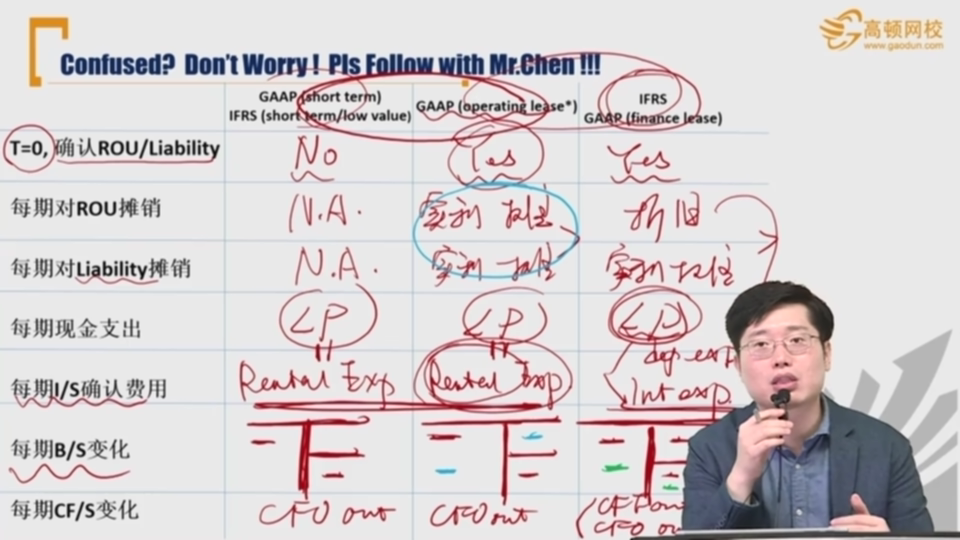 高顿网校
www.gaodun.com
Confused? Don't Worry! Pls Follow with Mr.Chen !!!
GAAP (short term)
IFRS (short term/low value)
GAAP (operating lease*)
IFRS
GAAP (finance lease)
T=0, 确认ROU/Liability
No
Yes
Yes
每期对ROU摊销
N.A.
实利 摊销
折旧
每期对Liability摊销
N.A.
实利 摊销
实利 摊销
每期现金支出
LP
LP
LP
dep exp
每期I/S确认费用
Rental Exp
Rental Exp
Int exp.
每期B/S变化
每期CF/S变化
CFO out
CFO out
CFF out
CFO out